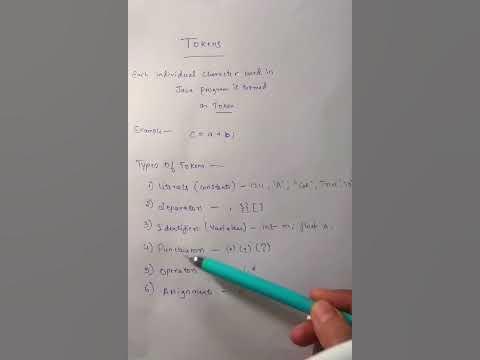 Tokens
Each individual character used in
Java program is termed
as Token
Example — c = a + b;
Types of Tokens —
1) Literals (constants) — 'A', "Cat",
2) Separator — , {} []
3) Identifier (variables) — int m; float n.
4) Punctuator — (?)
5) Operator
6) Assignments —